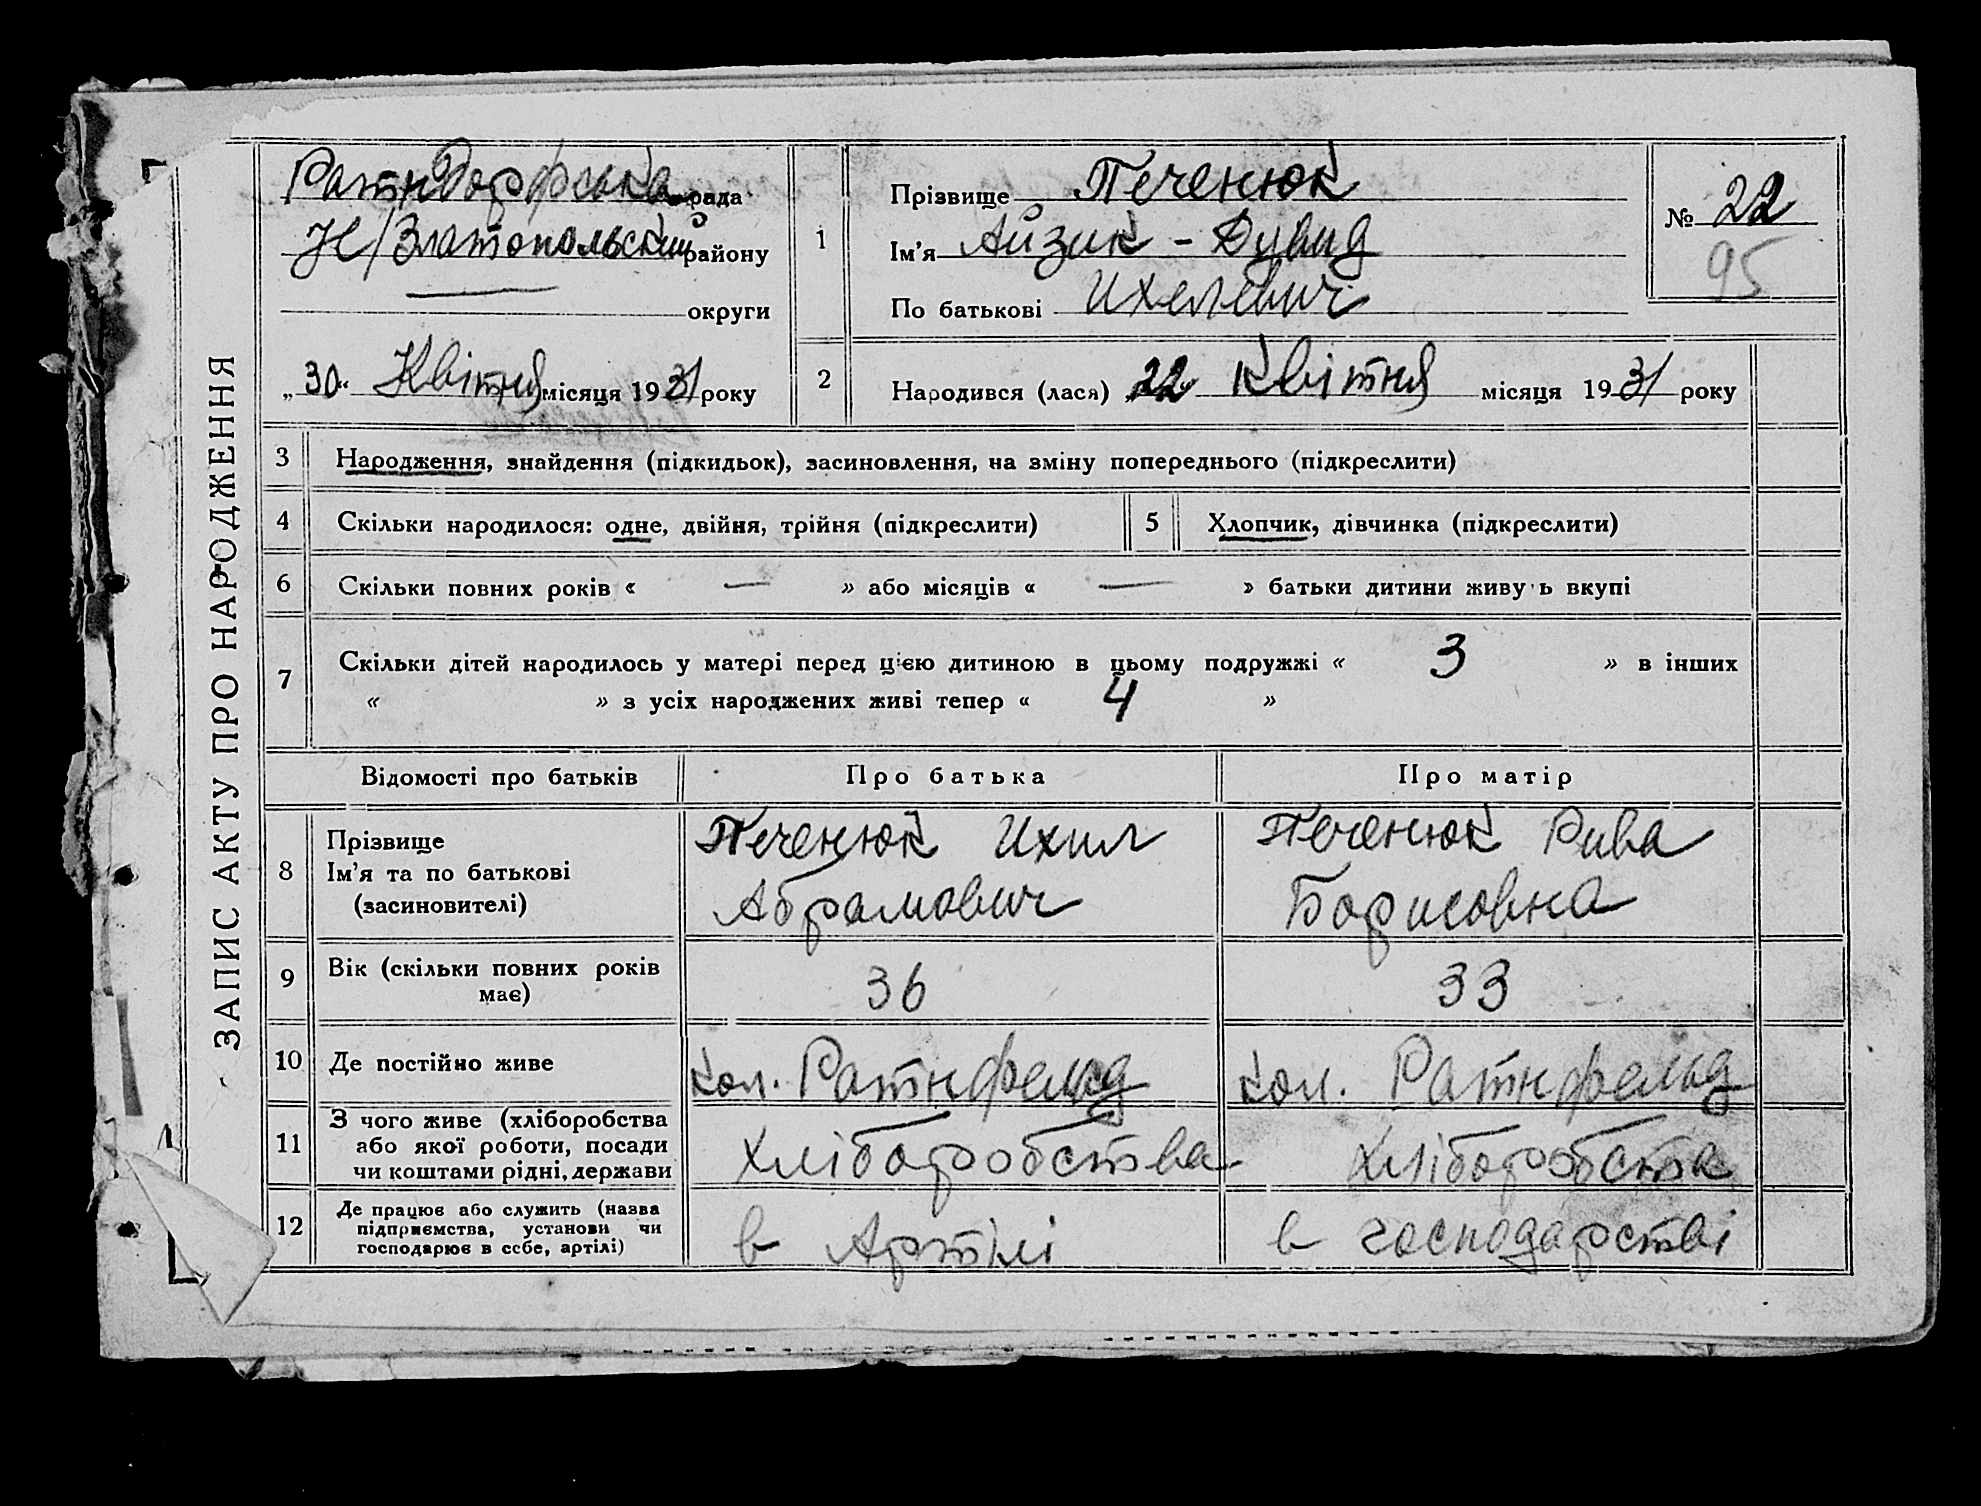 ЗАПИС АКТУ ПРО НАРОДЖЕННЯ
Ратндорфська рада
Н/Златопольский району
округи
„30“ Квітня місяця 1931 року
1
Прізвище Печенюк
Ім'я Айзик - Дувид
По батькові Ихелевич
№ 22
95
2
Народився (лася) „22“ Квітня місяця 1931 року
3 Народження, знайдення (підкидьок), засиновлення, на зміну попереднього (підкреслити)
4 Скільки народилося: одне, двійня, трійня (підкреслити)
5 Хлопчик, дівчинка (підкреслити)
6 Скільки повних років « — » або місяців « — » батьки дитини живуть вкупі
7 Скільки дітей народилось у матері перед цією дитиною в цьому подружжі « 3 » в інших
« » з усіх народжених живі тепер « 4 »
Відомості про батьків Про батька Про матір
8 Прізвище
Ім'я та по батькові
(засиновителі)
Печенюк Ихил
Абрамович
Печенюк Рива
Борисовна
9 Вік (скільки повних років
має)
36
33
10 Де постійно живе
кол. Ратнфельд
кол. Ратнфельд
11 З чого живе (хліборобства
або якої роботи, посади
чи коштами рідні, держави
хліборобства
хліборобста
12 Де працює або служить (назва
підприємства, установи чи
господарює в себе, артілі)
в Артілі
в господарстві